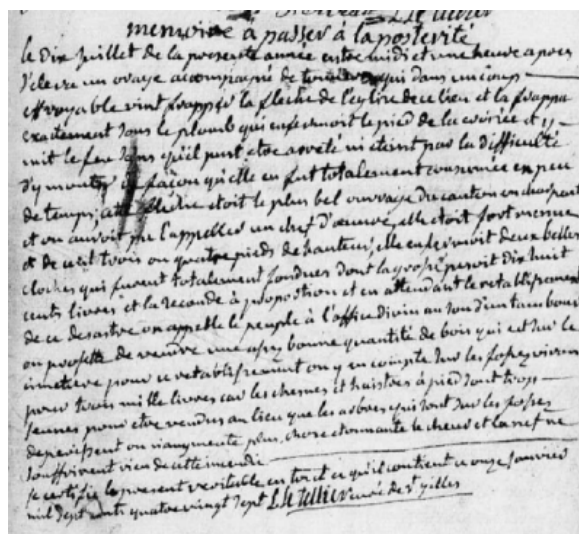 memoire à passer à la posterité
le Dix juillet de la presente année entre midi et une heure apres
s'eleva un orage accompagné de tonnerre qui dans un coup
effroyable vint frapper la fleche de l'eglise de ce lieu et la frappa
exactement sous le plomb qui enfermoit le pied de la croisée et y
mit le feu sans qu'il put etre arreté ni eteint par la difficulté
d'y monter de façon qu'elle en fut totalement consumée en peu
de temps, cette fleche etoit le plus bel ouvrage du canton en charpente
et on auroit pu l'appeller un chef d'oeuvre, elle etoit fort menue
et de cent trois ou quatre pieds de hauteur, elle enfermoit deux belles
cloches qui furent totalement fondues dont la grosse pesoit dix huit
cents livres et la seconde à proportion et en attendant le retablissement
de ce desastre on appelle le peuple à l'office divin au son d'un tambour
on projette de vendre une assez bonne quantité de bois qui est sur le
cimetiere pour ce retablissement on y en compte sur les fossez environ
pour trois mille livres car les chesnes et haistres à pied sont trop
jeunes pour etre vendus au lieu que les arbres qui sont sur les fossez
deperissent ou n'augmente plus, chose etonnante le choeur et la nef ne
souffrirent rien de cette incendie
je certifie le present veritable en tout ce qu'il contient ce onze janvier
mil sept cents quatre vingt sept L Le Tellier curé de St gilles